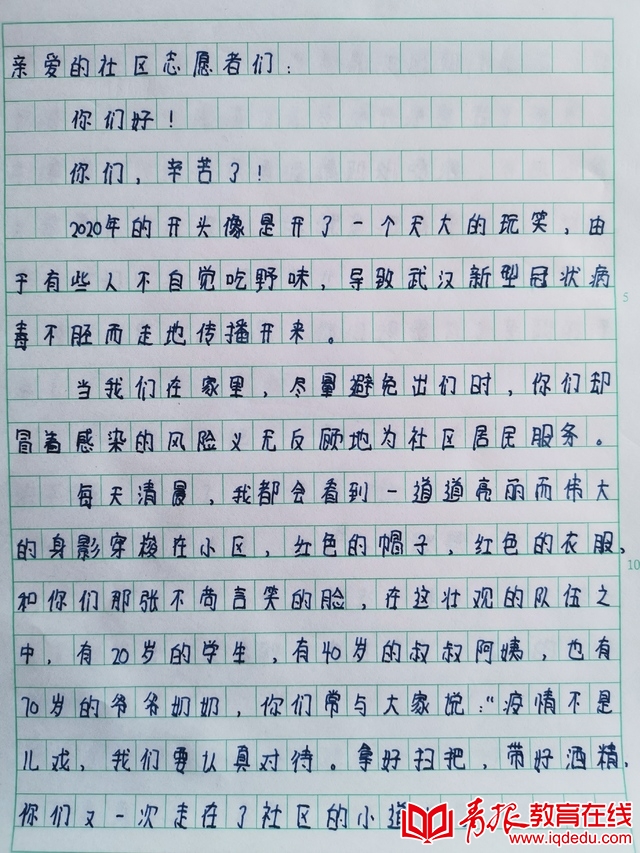 亲爱的社区志愿者们：
你们好！
你们，辛苦了！
2020年的开头像是开了一个天大的玩笑，由
于有些人不自觉吃野味，导致武汉新型冠状病
毒不胫而走地传播开来。
当我们在家里，尽量避免出们时，你们却
冒着感染的风险义无反顾地为社区居民服务。
每天清晨，我都会看到一道道亮丽而伟大
的身影穿梭在小区，红色的帽子，红色的衣服，
和你们那张不苟言笑的脸，在这壮观的队伍之
中，有20岁的学生，有40岁的叔叔阿姨，也有
70岁的爷爷奶奶，你们常与大家说：“疫情不是
儿戏，我们要认真对待。拿好扫把，带好酒精，
你们又一次走在了社区的小道
5
10
青报教育在线
www.iqdedu.com